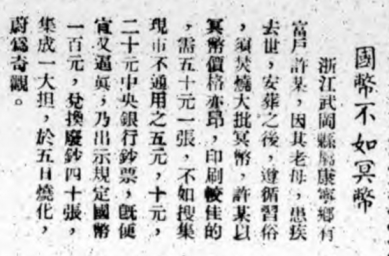 國幣不如冥幣
浙江武岡縣屬康寧鄉有
富戶許某，因其老母，患疾
去世，安葬之後，遵循習俗
，須焚燒大批冥幣，許某以
冥幣價格亦昂，印刷較佳的
，需五十元一張，不如搜集
現市不通用之五元，十元，
二十元中央銀行鈔票，旣便
宜又逼眞，乃出示規定國幣
一百元，兌換廢鈔四十張，
集成一大担，於五日燒化，
蔚爲奇觀。